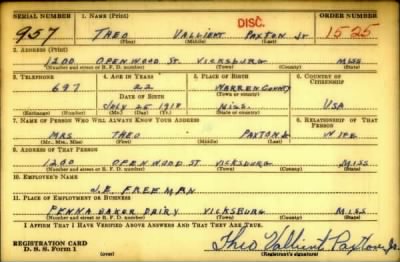 SERIAL NUMBER 1. NAME (Print) DISC. ORDER NUMBER
957 THEO VALLIENT PAXTON Jr 1525
(First) (Middle) (Last)
2. ADDRESS (Print)
1200 OPENWOOD St. VICKSBURG MISS
(Number and street or R. F. D. number) (Town) (County) (State)
3. TELEPHONE 4. AGE IN YEARS 5. PLACE OF BIRTH 6. COUNTRY OF CITIZENSHIP
697 22 WARREN COUNTY
DATE OF BIRTH (Town or county)
JULY 25 1918 MISS. USA
(Exchange) (Number) (Mo.) (Day) (Yr.) (State or country)
7. NAME OF PERSON WHO WILL ALWAYS KNOW YOUR ADDRESS 8. RELATIONSHIP OF THAT PERSON
MRS THEO PAXTON WIFE
(Mr., Mrs., Miss) (First) (Middle) (Last)
9. ADDRESS OF THAT PERSON
1200 OPENWOOD ST VICKSBURG MISS
(Number and street or R. F. D. number) (Town) (County) (State)
10. EMPLOYER'S NAME
J.E. FREEMAN
11. PLACE OF EMPLOYMENT OR BUSINESS
PENNABAKER DAIRY VICKSBURG MISS
(Number and street or R. F. D. number) (Town) (County) (State)
I AFFIRM THAT I HAVE VERIFIED ABOVE ANSWERS AND THAT THEY ARE TRUE.
REGISTRATION CARD Theo Vallient Paxton Jr.
D. S. S. Form 1 (over) (Registrant's signature)